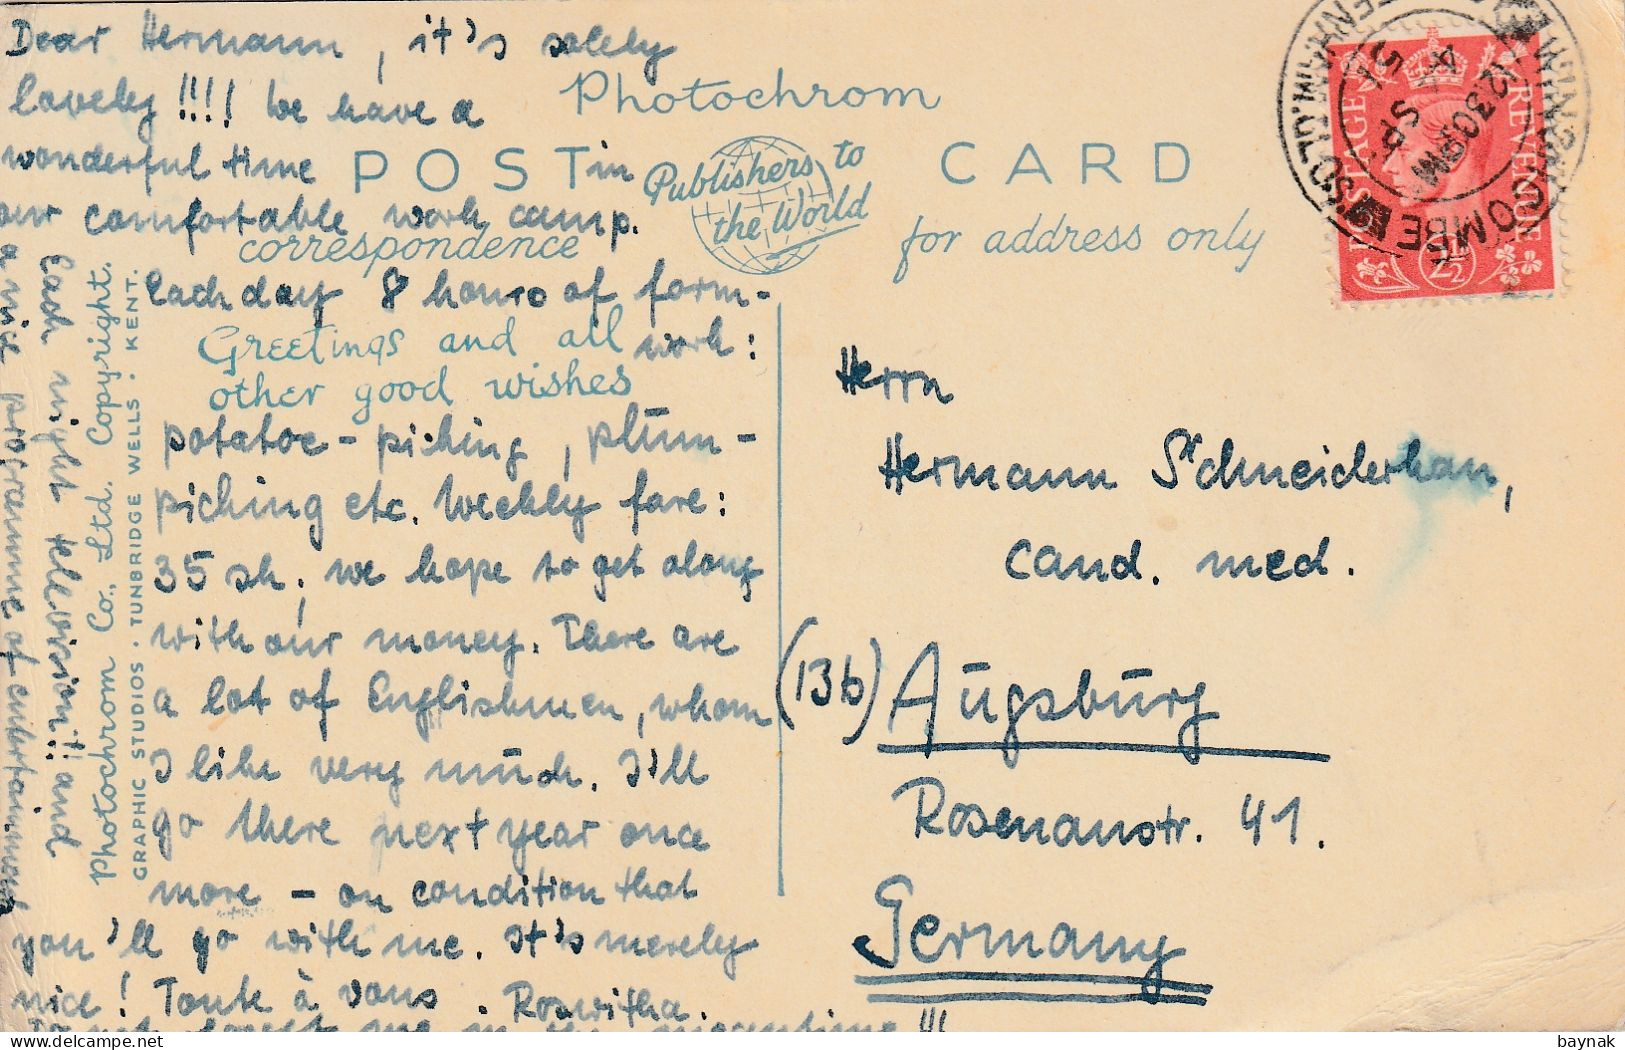 Dear Hermann, it's solely
lovely!!!! We have a
wonderful time in
our comfortable work camp.
Each day 8 hours of farm-
work:
potatoe-picking, plum-
picking etc. Weekly fare:
35 sh; we hope to get along
with our money. There are
a lot of Englishmen, whom
I like very much. I'll
go there next year once
more - on condition that
you'll go with me. It's merely
nice! Toute à vous. Roswitha
me in the meantime!!!
Each night television!!! and
a nice programme of entertainment
Photochrom
POST CARD
Publishers to
the World
correspondence
for address only
Greetings and all
other good wishes
Photochrom Co., Ltd. Copyright.
GRAPHIC STUDIOS · TUNBRIDGE WELLS · KENT.
Herrn
Hermann Schneiderhan,
cand. med.
(13b) Augsburg
Rosenaustr. 41.
Germany
POSTAGE REVENUE
2½
12.30 PM
4 SP
51
baynak